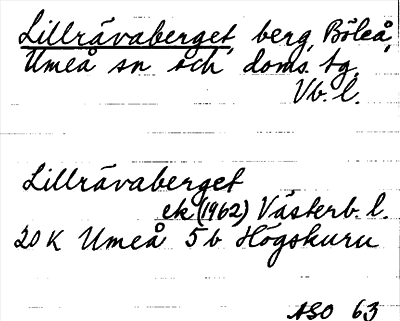 Lillrävaberget, berg, Böleå,
Umeå sn och doms. tg.
Vb. l.
Lillrävaberget
ek (1962) Västerb. l.
20 K Umeå 5 b Högskuru
ASO 63